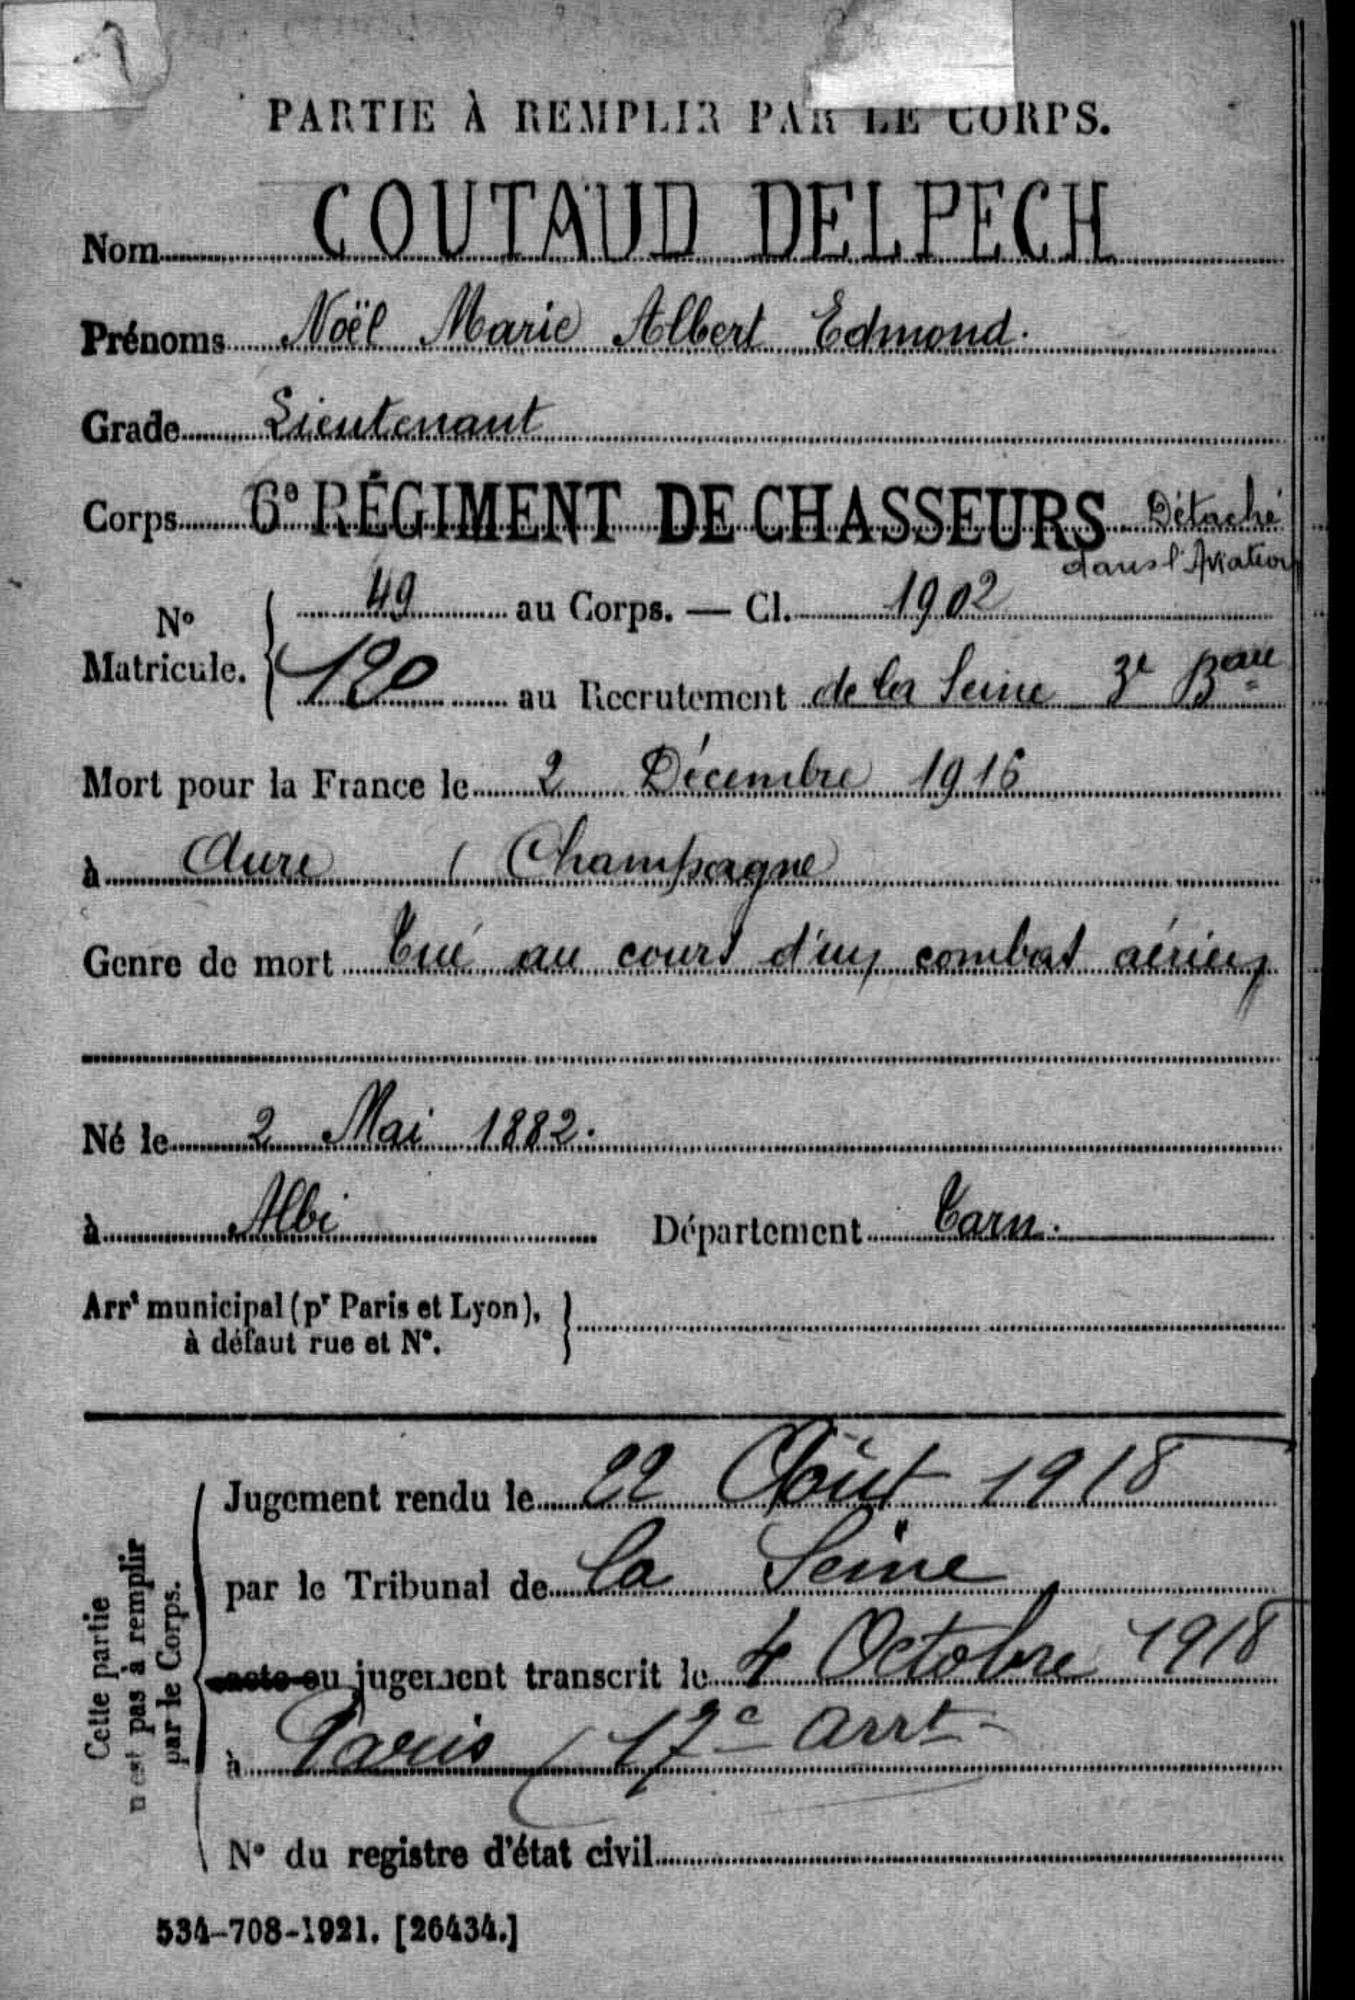 PARTIE À REMPLIR PAR LE CORPS.
Nom COUTAUD DELPECH
Prénoms Noël Marie Albert Edmond.
Grade Lieutenant
Corps 6e RÉGIMENT DE CHASSEURS Détaché
dans l'Aviation
No Matricule. { 49 au Corps. — Cl. 1902
120 au Recrutement de la Seine 3e Bau
Mort pour la France le 2 Décembre 1916
à Aure (Champagne
Genre de mort Tué au cours d'un combat aérien
Né le 2 Mai 1882.
à Albi Département Tarn.
Arrt municipal (pr Paris et Lyon), }
à défaut rue et No.
Cette partie
n'est pas à remplir
par le Corps.
Jugement rendu le 22 Août 1918
par le Tribunal de la Seine
acte ou jugement transcrit le 4 Octobre 1918
à Paris (17e arrt
No du registre d'état civil
534-708-1921. [26434.]